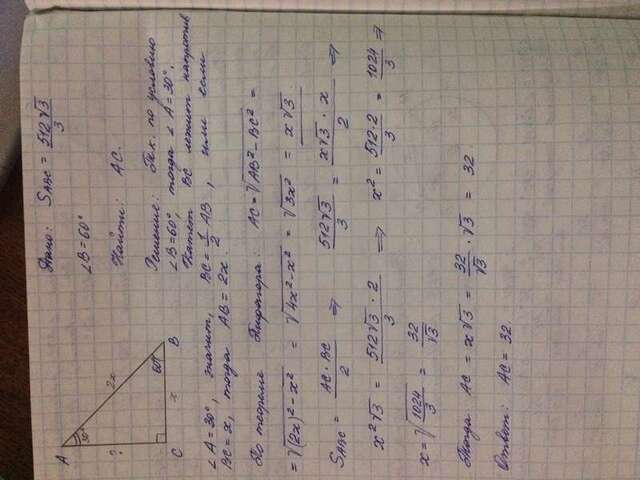 Дано: S_ABC = 512√3/3
∠B=60°
Найти: AC.
Решение: т.к. по условию
∠B=60°, тогда ∠A=30°.
Катет BC лежит напротив
∠A=30°, значит, BC=1/2 AB, или если
BC=x, тогда AB=2x.
По теореме Пифагора: AC=√(AB²-BC²) =
=√((2x)²-x²) = √(4x²-x²) = √(3x²) = x√3
S_ABC = AC·BC/2 ⇒ 512√3/3 = x√3·x/2 ⇒
x²√3 = 512√3·2/3 ⇒ x² = 512·2/3 = 1024/3 ⇒
x=√(1024/3) = 32/√3
Тогда AC = x√3 = 32/√3 · √3 = 32
Ответ: AC = 32.
A
30°
?
2x
60°
B
x
C